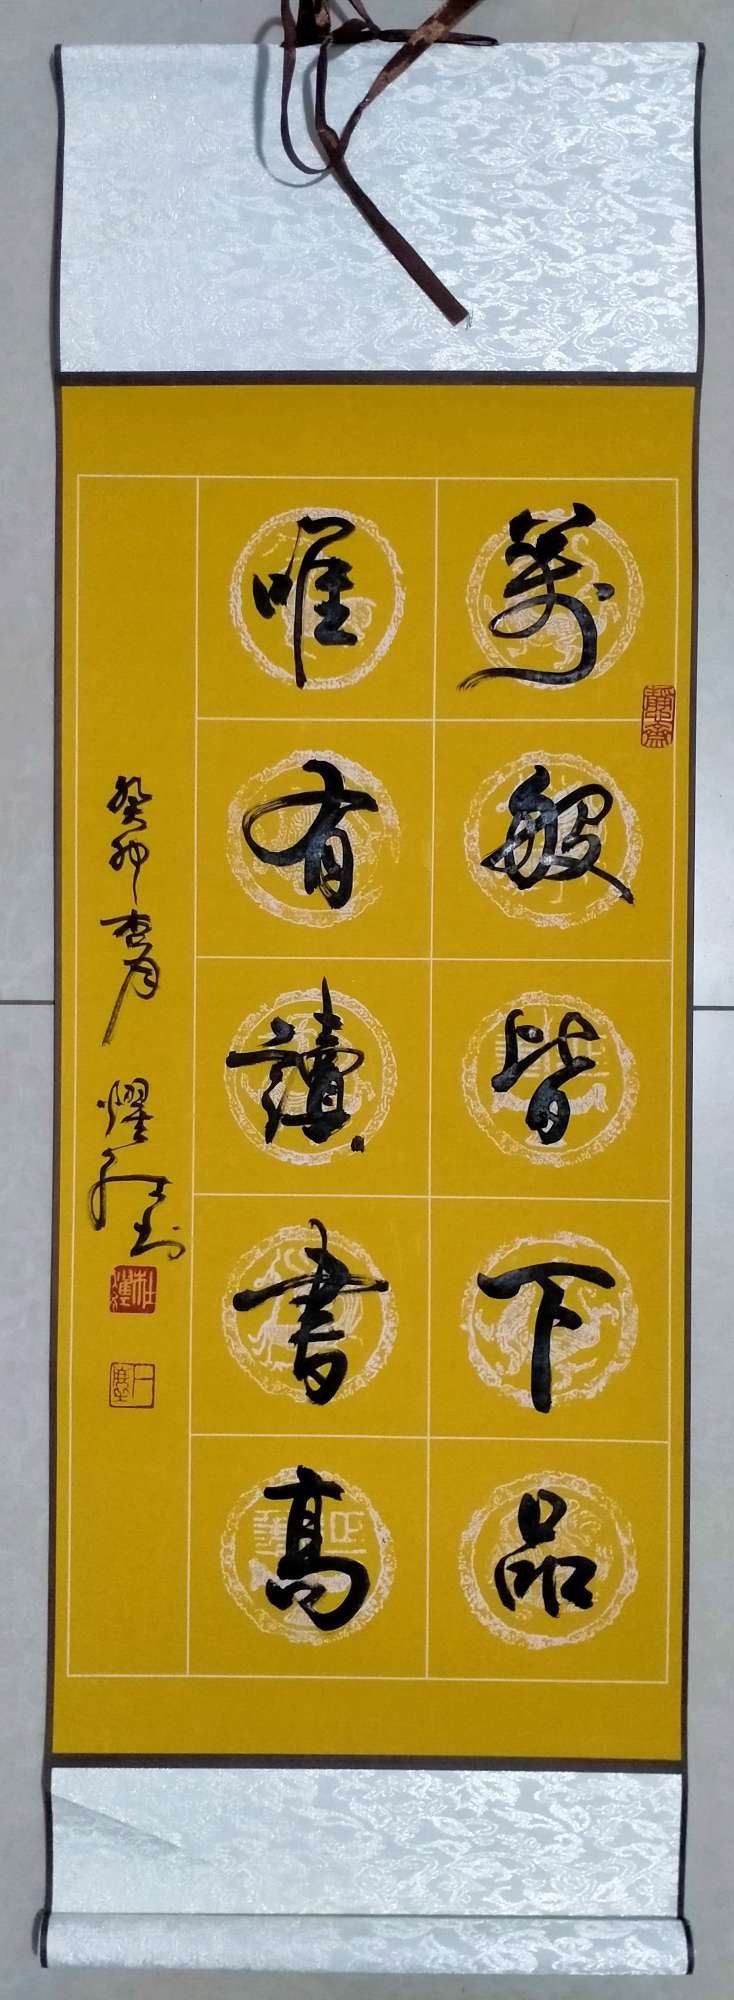 萬般皆下品
唯有讀書高
癸卯杏月
燿
書